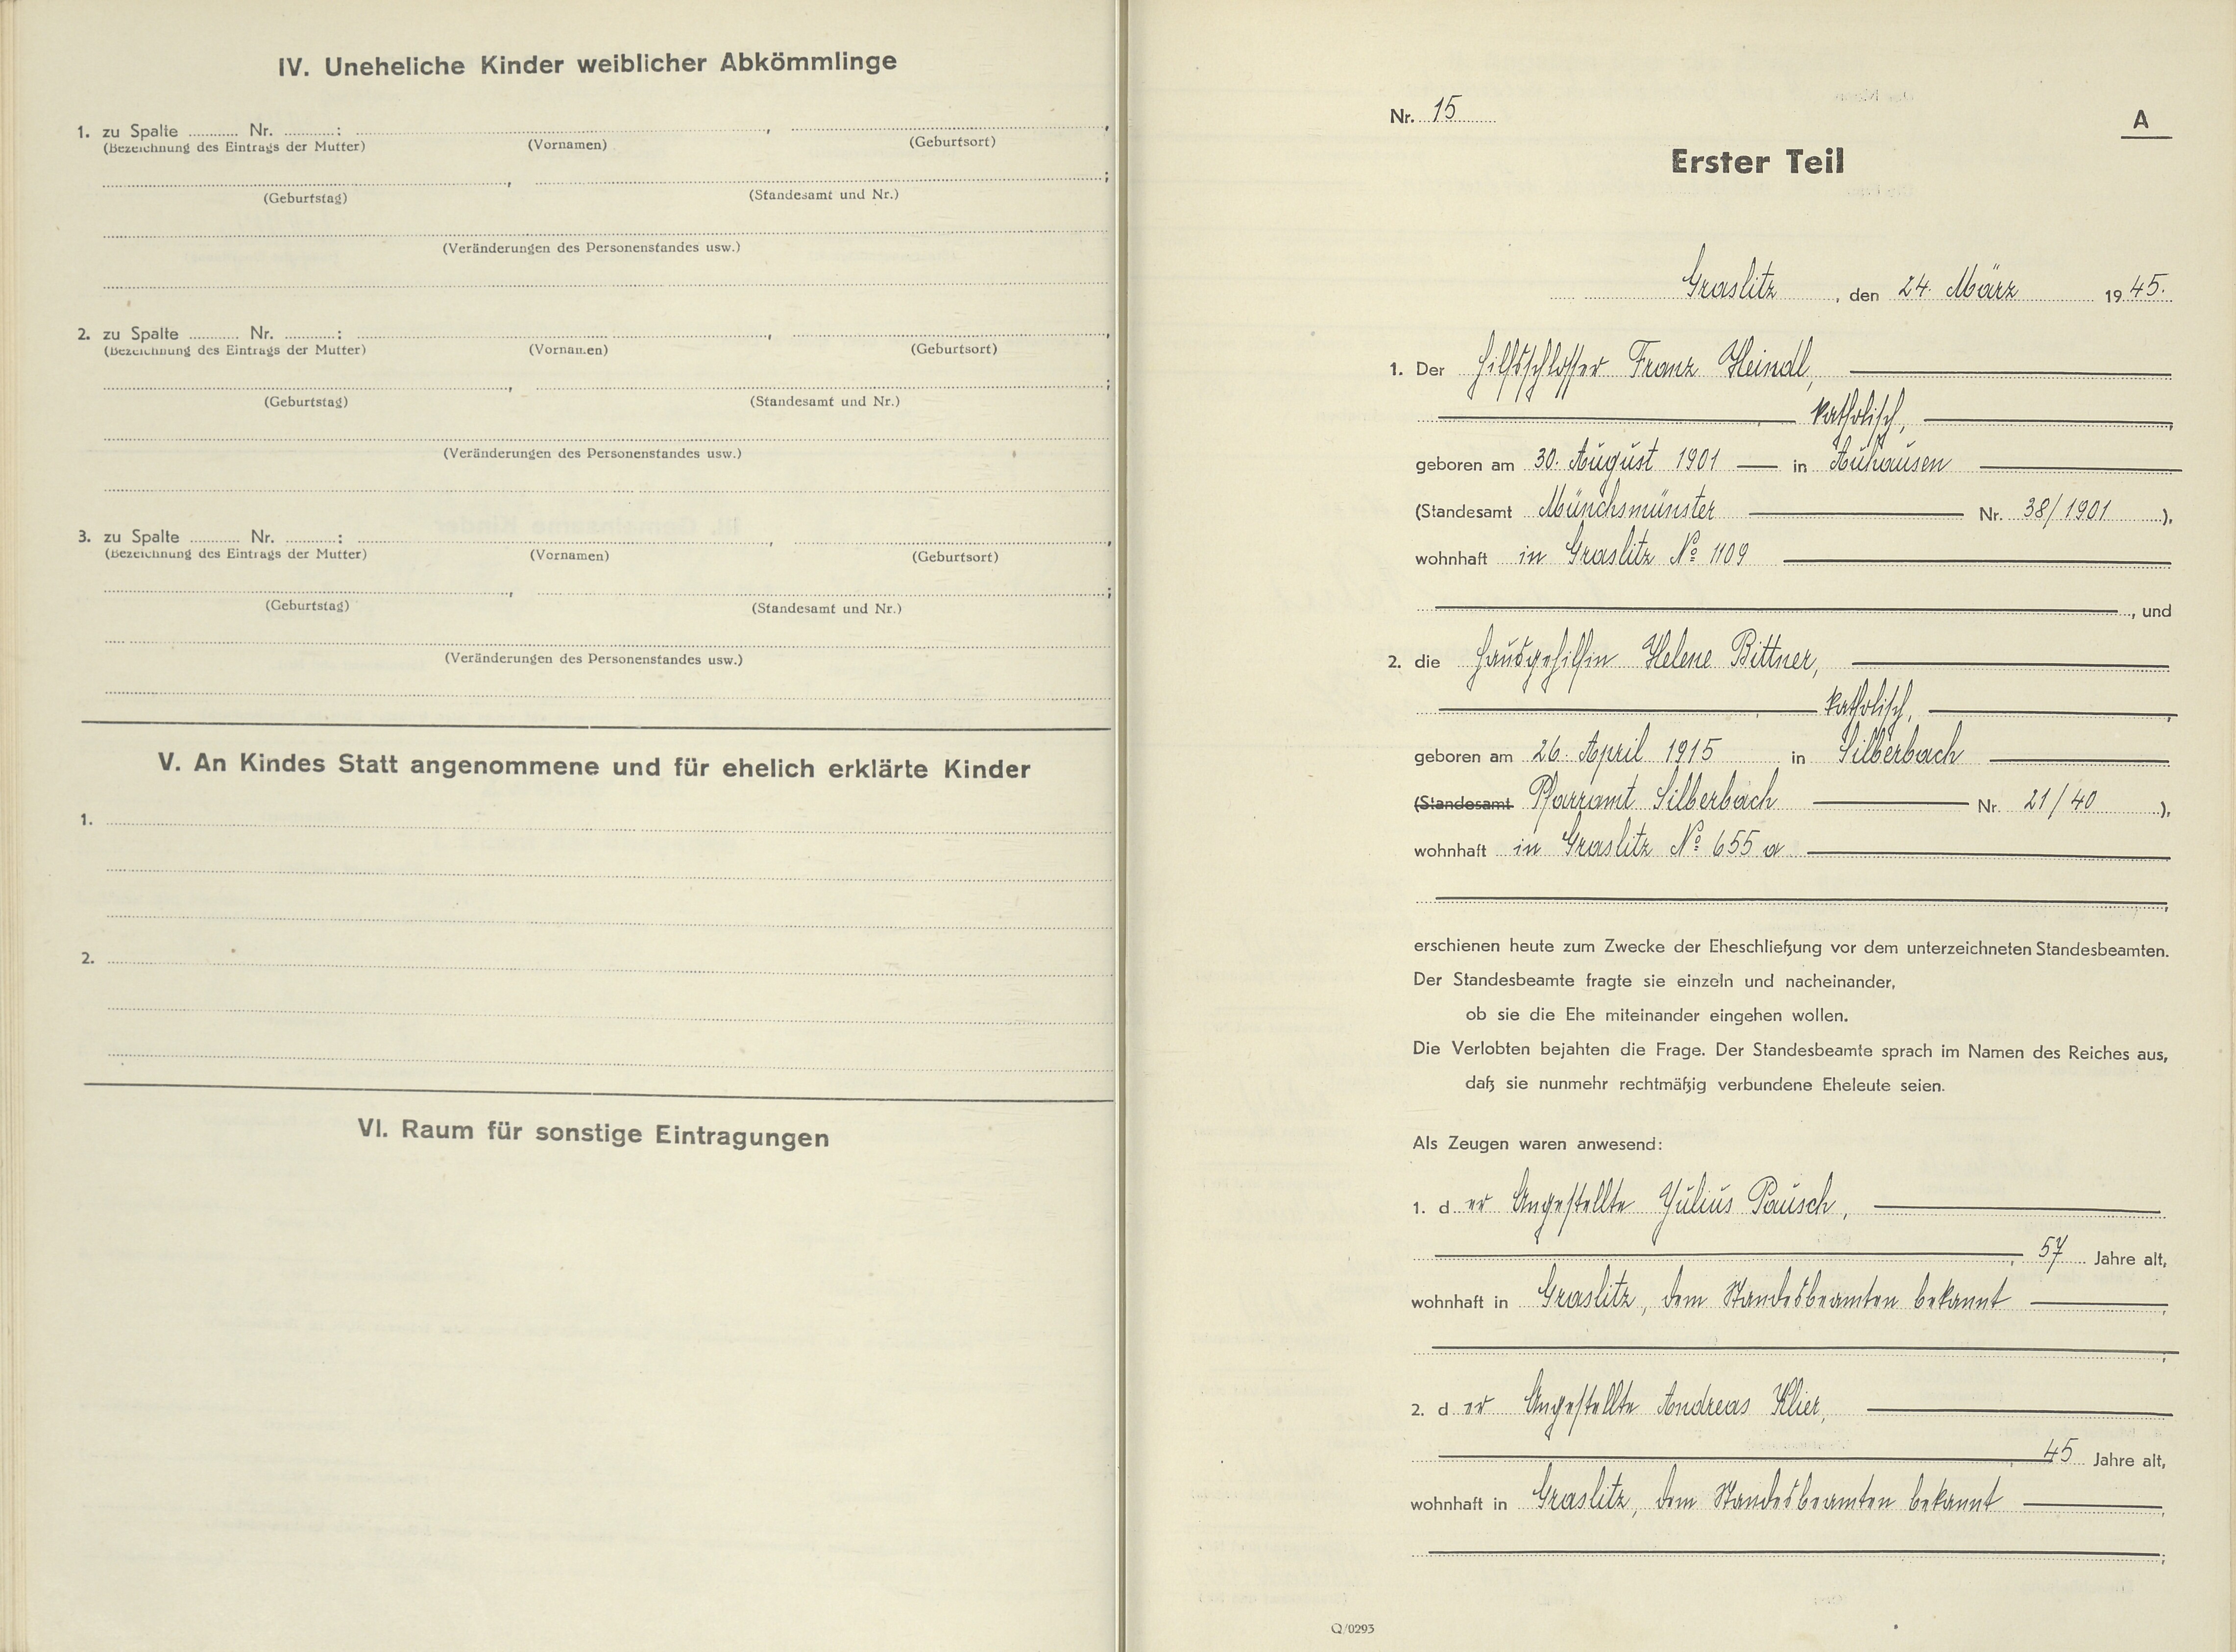 IV. Uneheliche Kinder weiblicher Abkömmlinge
1. zu Spalte ........... Nr. ...........: , ,
(Bezeichnung des Eintrags der Mutter) (Vornamen) (Geburtsort)
, ;
(Geburtstag) (Standesamt und Nr.)
(Veränderungen des Personenstandes usw.)
2. zu Spalte ........... Nr. ...........: , ,
(Bezeichnung des Eintrags der Mutter) (Vornamen) (Geburtsort)
, ;
(Geburtstag) (Standesamt und Nr.)
(Veränderungen des Personenstandes usw.)
3. zu Spalte ........... Nr. ...........: , ,
(Bezeichnung des Eintrags der Mutter) (Vornamen) (Geburtsort)
, ;
(Geburtstag) (Standesamt und Nr.)
(Veränderungen des Personenstandes usw.)
V. An Kindes Statt angenommene und für ehelich erklärte Kinder
1.
2.
VI. Raum für sonstige Eintragungen
Nr. 15
A
Erster Teil
Graslitz, den 24. März 1945.
1. Der Hilfsschlosser Franz Heindl,
katholisch,
geboren am 30. August 1901 in Auhausen
(Standesamt Münchsmünster Nr. 38/1901),
wohnhaft in Graslitz No 1109
, und
2. die Hausgehilfin Helene Bittner,
katholisch,
geboren am 26. April 1915 in Silberbach
(Standesamt Pfarramt Silberbach Nr. 21/40),
wohnhaft in Graslitz No 655 a
erschienen heute zum Zwecke der Eheschließung vor dem unterzeichneten Standesbeamten.
Der Standesbeamte fragte sie einzeln und nacheinander,
ob sie die Ehe miteinander eingehen wollen.
Die Verlobten bejahten die Frage. Der Standesbeamte sprach im Namen des Reiches aus,
daß sie nunmehr rechtmäßig verbundene Eheleute seien.
Als Zeugen waren anwesend:
1. der Angestellte Julius Pausch,
, 57 Jahre alt,
wohnhaft in Graslitz, dem Standesbeamten bekannt
;
2. der Angestellte Andreas Klier,
, 45 Jahre alt,
wohnhaft in Graslitz, dem Standesbeamten bekannt
;
Q/0293